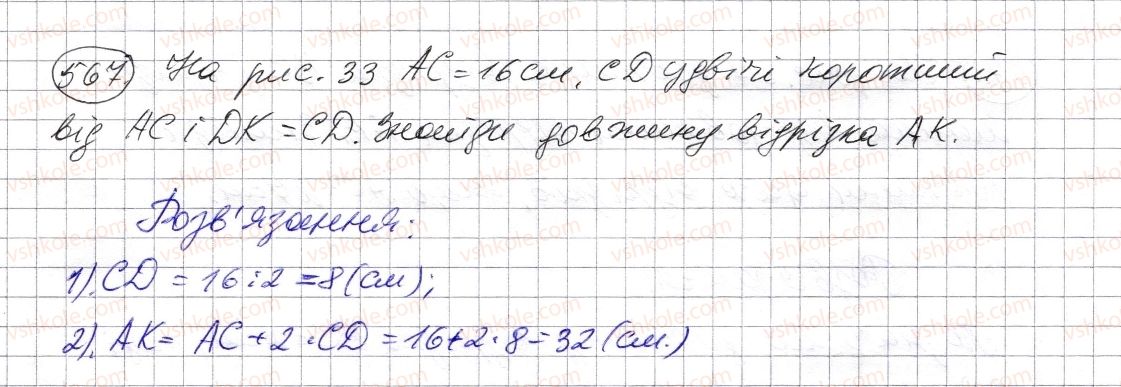 567 На рис. 33 AC = 16 см, CD удвічі коротший
від AC і DK = CD. Знайди довжину відрізка AK.
Розв'язання:
1). CD = 16 : 2 = 8 (см);
2). AK = AC + 2 · CD = 16 + 2 · 8 = 32 (см.)